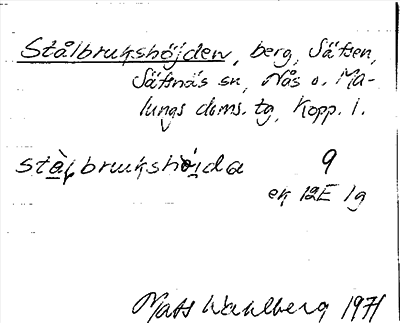 Stålbrukshöjden, berg, Säfsen,
Säfsnäs sn, Nås o. Ma-
lungs doms. tg, Kopp. l.
stàl,brukshöi̯da 9
ek 12E 1g
Mats Wahlberg 1971